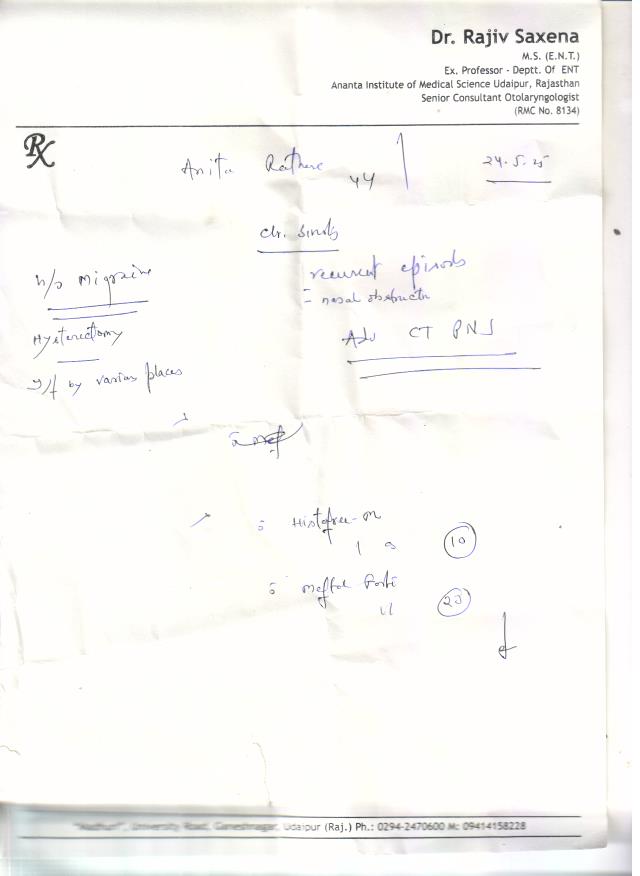 Dr. Rajiv Saxena
M.S. (E.N.T.)
Ex. Professor - Deptt. Of ENT
Ananta Institute of Medical Science Udaipur, Rajasthan
Senior Consultant Otolaryngologist
(RMC No. 8134)
Rx
Anita 44
24.5.25
Chr.
H/o Migraine
recurrent
nasal
Adv CT PNS
by places
Histafree-M
1 10
Meftal Forte
20
University Road, Ganeshnagar, Udaipur (Raj.) Ph.: 0294-2470600 M: 09414158228